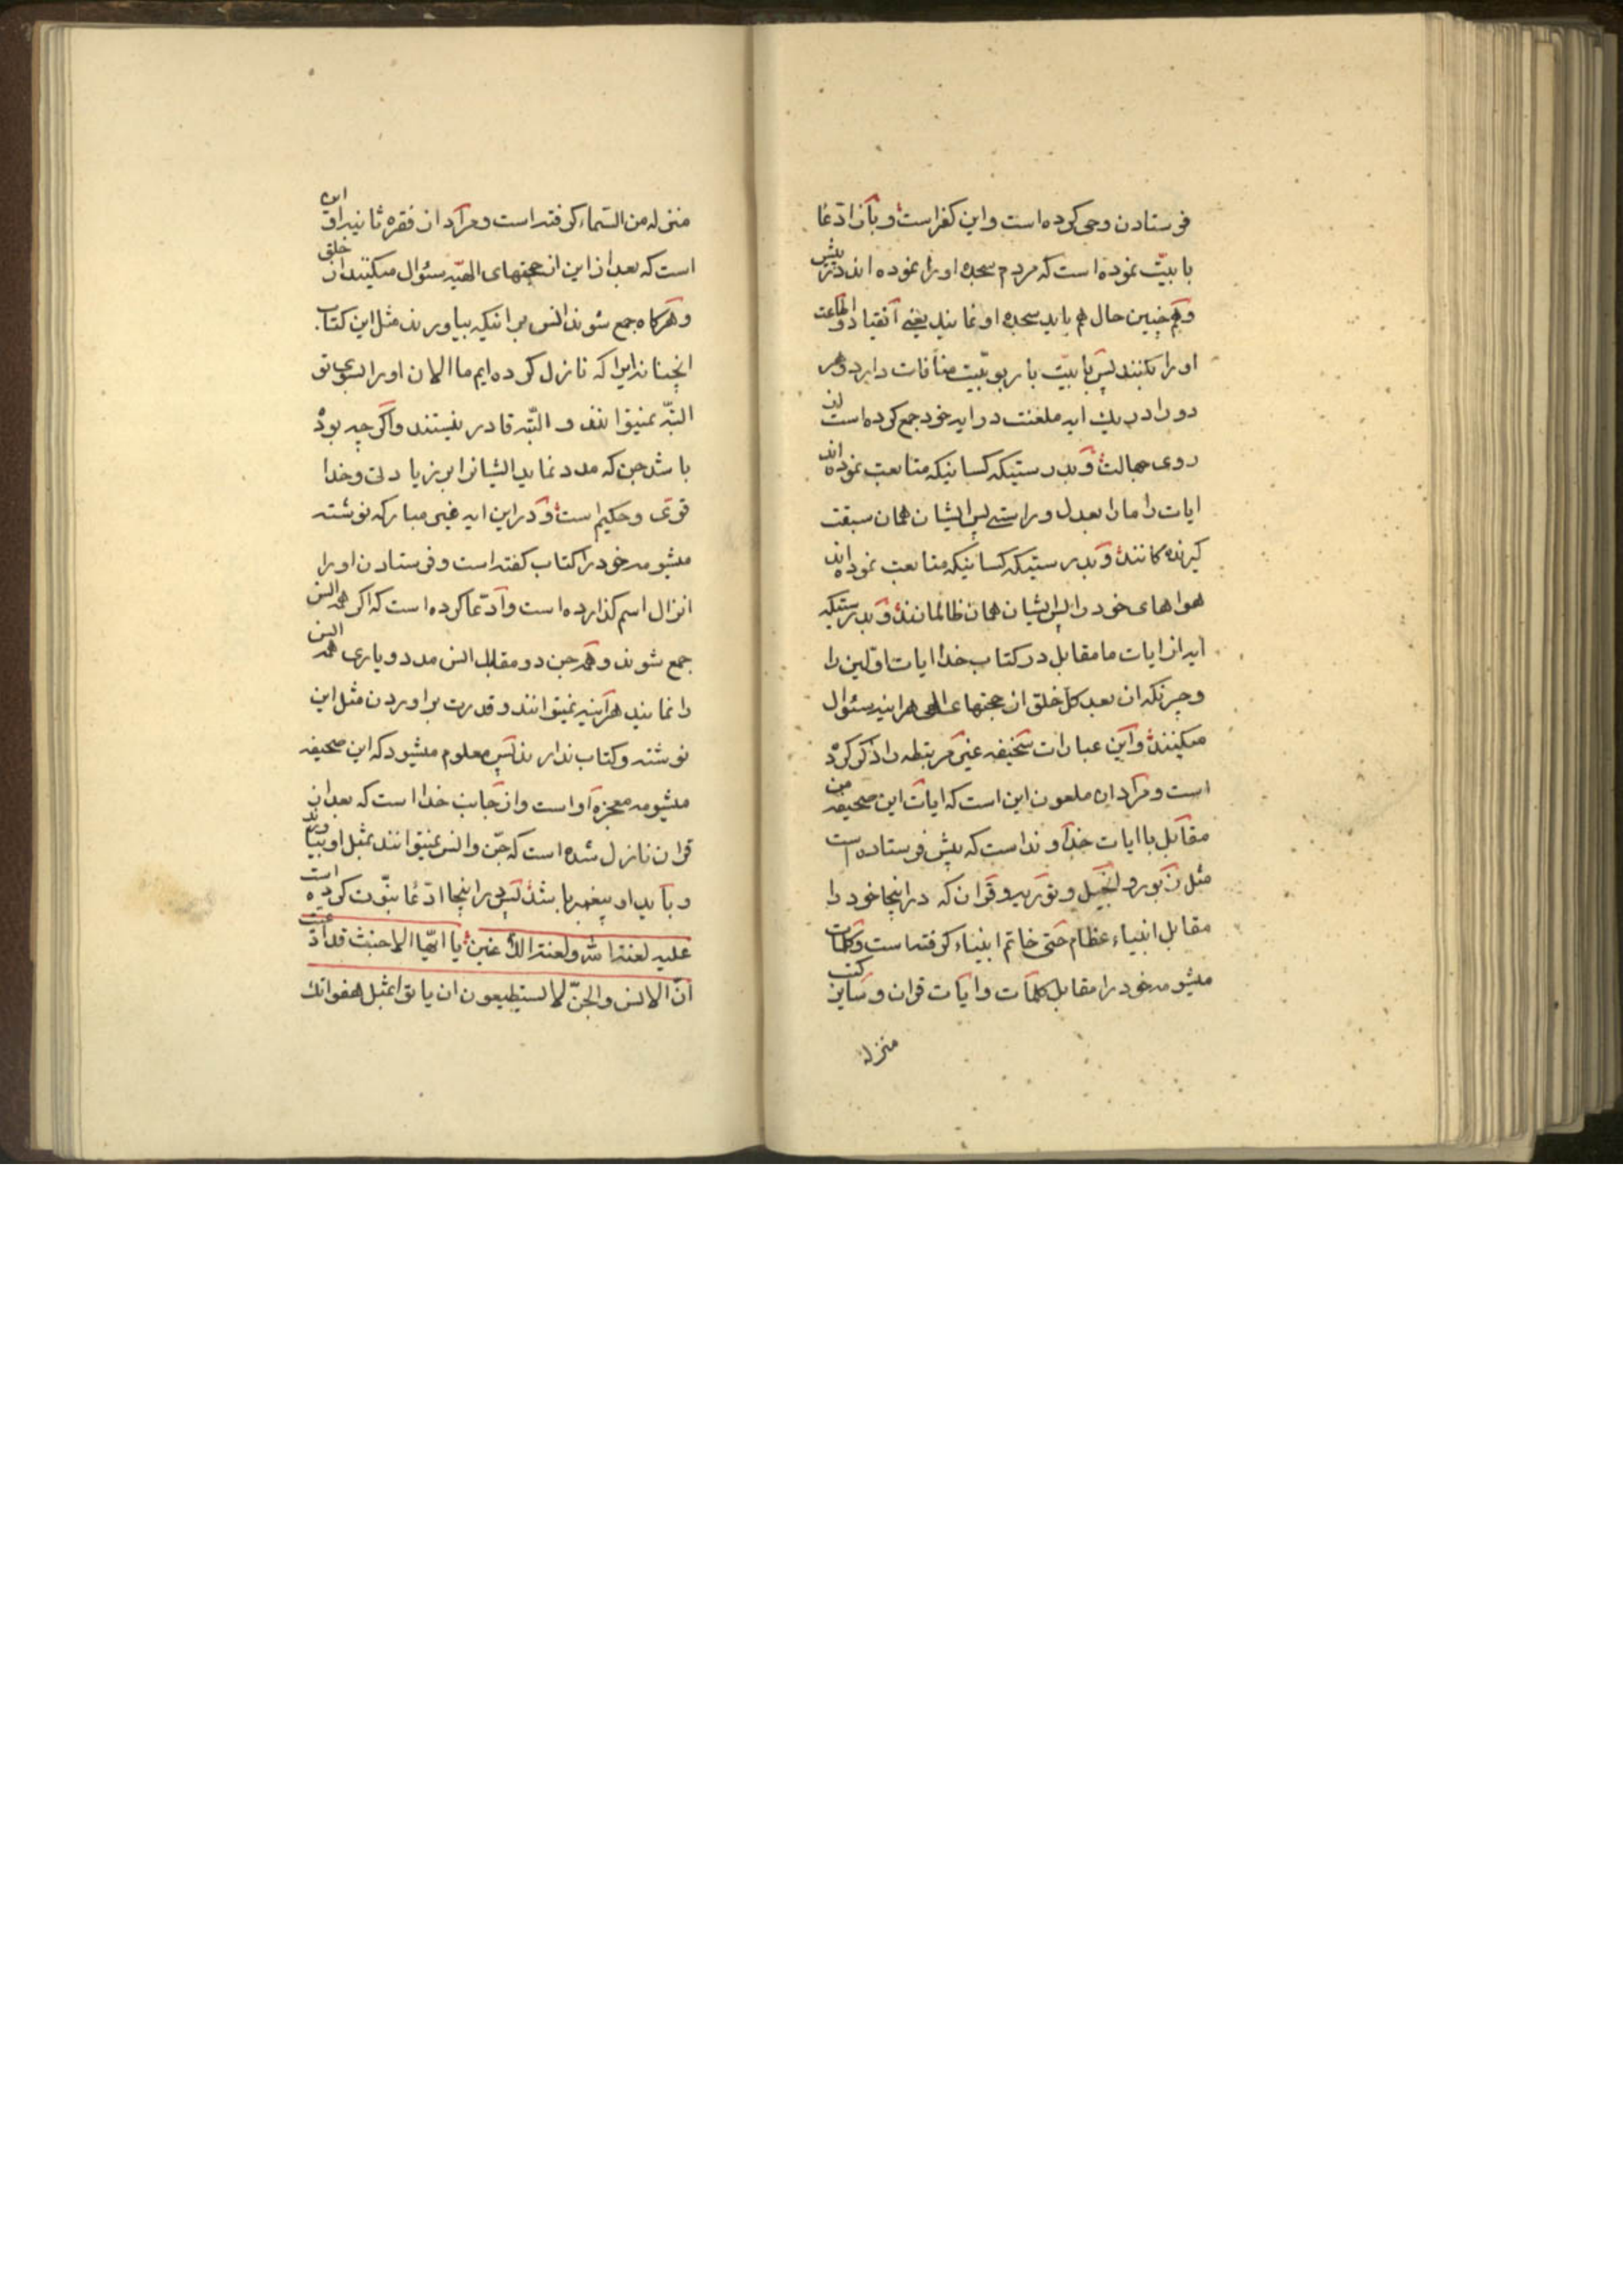 فرستادن وحی کرده است و این کفر است و باز ادّعا
بابیّت نموده است که مردم سجده او را نموده اند در پیش
و همچنین حال هم باید سجده او نمایند یعنی انقیاد و اطاعت
او را بکنند پس بابیّت با ربوبیّت منافات دارد و هر
دو را در یک ایه ملعنت در ایه خود جمع کرده است از
روی جهالت و بدرستیکه کسانیکه متابعت نموده اند
ایات را ما را بعدل و راستی پس ایشان همان سبقت
گیرنده کانند و بدرستیکه کسانیکه متابعت نموده اند
هواهای خود را پس ایشان همان ظالمانند و بدرستیکه
ایه از ایات ما مقابل در کتاب خدا ایات اوّلین را
و چیزیکه از بعد کلّ خلق از حجتهای الهی هراینه سئوال
میکنند و این عبارات سخیفه غیر مربتطه را ذکر کرده
است و مراد ان ملعون این است که ایات این صحیفه من
مقابل با ایات خداوند است که پیش فرستاده است
مثل زبور و انجیل و توریه و قران که در اینجا خود را
مقابل انبیاء عظام حتی خاتم انبیاء گرفته است و کلمات
میشومه خود را مقابل کلمات و ایات قران و سایر کتب
منزله
منزله من السّماء گرفته است و مراد از فقره ثانیه او این
است که بعد از این از حجتهای الهیّه سئوال میکنند از خلق
و هرگاه جمع شوند انس بر انیکه بیاورند مثل این کتاب
انچنانه ایرا که نازل کرده ایم ما الان او را بسوی تو
البتّه نمیتوانند و البتّه قادر نیستند و اگرچه بوده
باشد جن که مدد نماید ایشانرا بر زیادتی و خدا
قوی و حکیم است و در این ایه غیر مبارکه نوشته
میشومه خود را کتاب گفته است و فرستادن او را
انزال اسم گذارده است و ادّعا کرده است که اگر همه انس
جمع شوند و همه جن دو مقابل انس مدد و یاری همه انس
را نمایند هراینه نمیتوانند و قدرت بر اوردن مثل این
نوشته و کتاب ندارند پس معلوم میشود که این صحیفه
میشومه معجزه او است و از جانب خدا است که بعد از
قران نازل شده است که جنّ و انس نمیتوانند بمثل او بیاورند
و باید او پیغمبر باشد پس در اینجا ادّعا نبّوت کرده است
علیه لعنة الله و لعنة اللاعنین یا ایّها الاخبث قد ادّعیت
انّ الانس و الجنّ لا یستطیعون ان یاتوا بمثل هفواتک